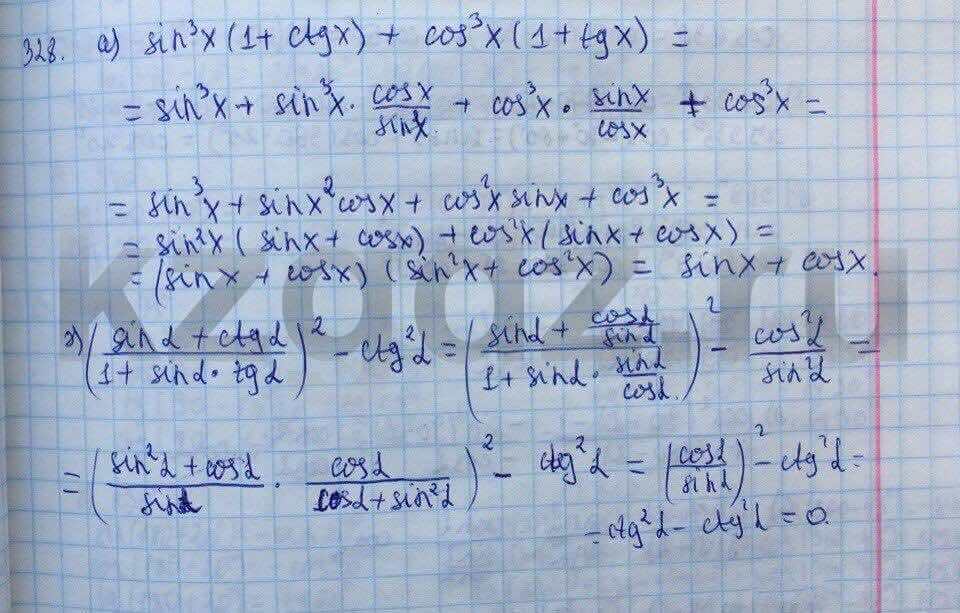 328. а) sin³x (1 + ctgx) + cos³x (1 + tgx) =
= sin³x + sin³x · cosx/sinx + cos³x · sinx/cosx + cos³x =
= sin³x + sinx² cosx + cos²x sinx + cos³x =
= sin²x (sinx + cosx) + cos²x (sinx + cosx) =
= (sinx + cosx) (sin²x + cos²x) = sinx + cosx.
kzgdz.ru
г) ((sinα + ctgα)/(1 + sinα · tgα))² - ctg²α = ((sinα + cosα/sinα)/(1 + sinα · sinα/cosα))² - cos²α/sin²α =
= ((sin²α + cosα)/sinα · cosα/(cosα + sin²α))² - ctg²α = (cosα/sinα)² - ctg²α =
= ctg²α - ctg²α = 0.